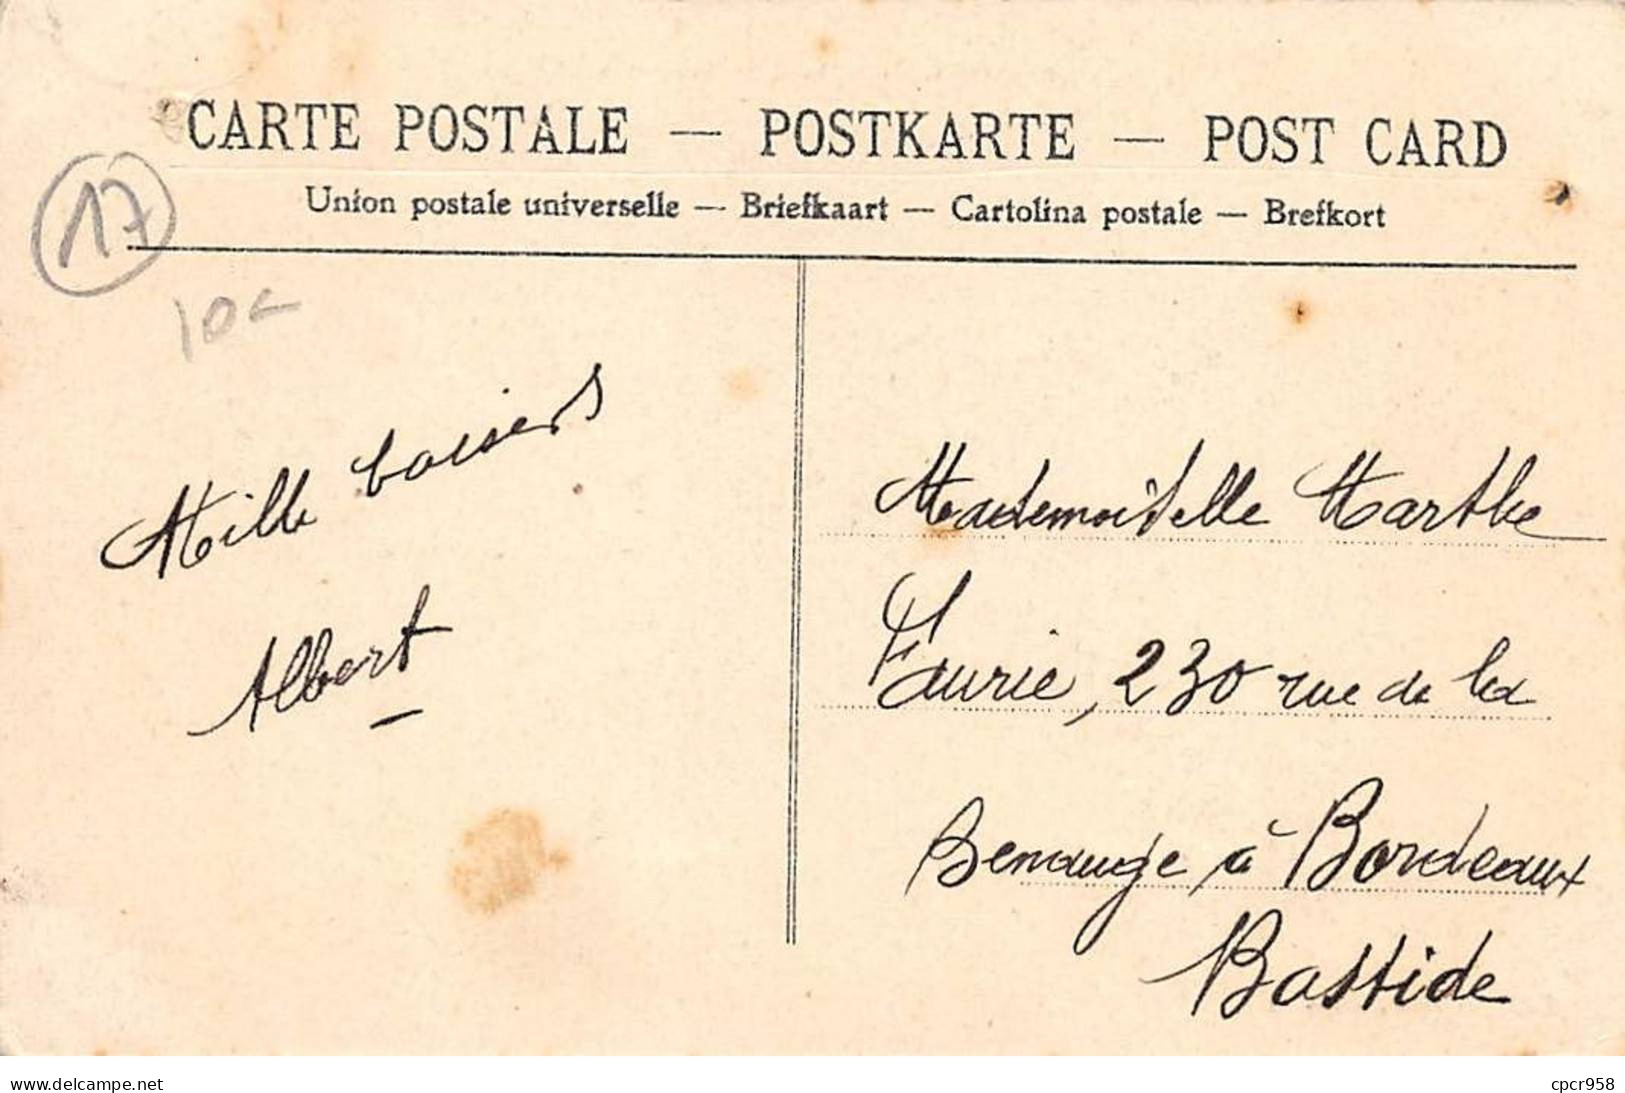 CARTE POSTALE — POSTKARTE — POST CARD
Union postale universelle — Briefkaart — Cartolina postale — Brefkort
17
10€
Mille baisers
Albert
Mademoiselle Marthe
Faurie, 230 rue de la
Benauge à Bordeaux
Bastide
www.delcampe.net
cpcr958